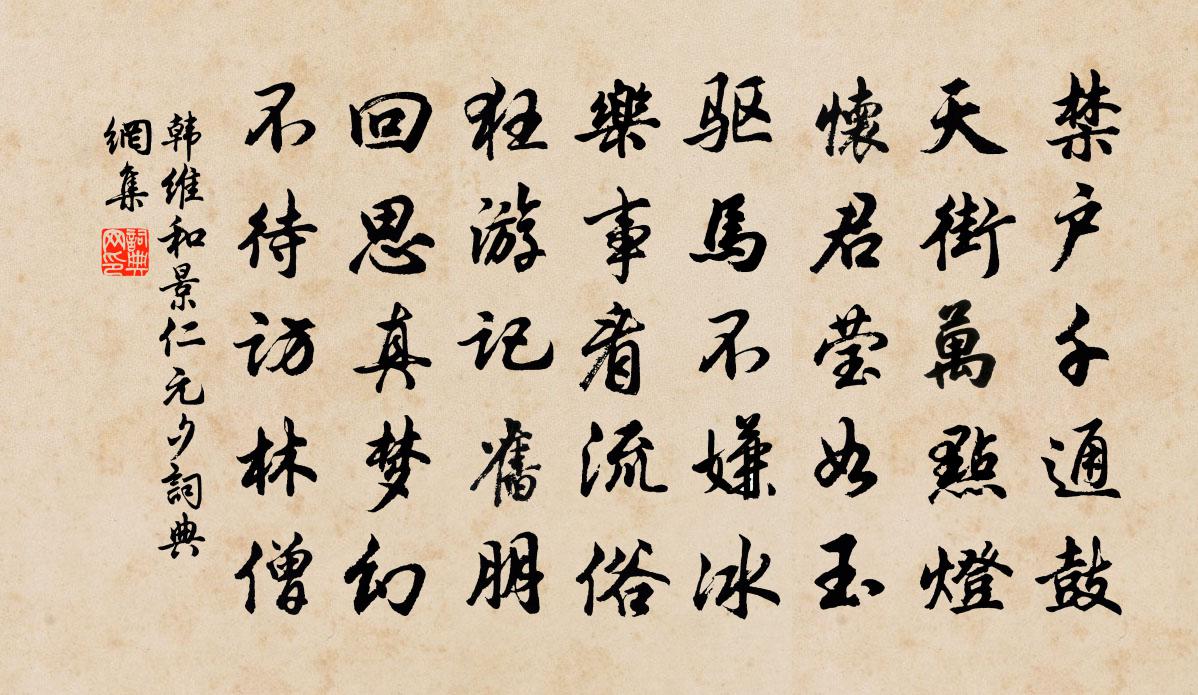 禁户千通鼓
天街萬點燈
懷君莹如玉
驱馬不嫌冰
樂事看流俗
狂游记舊朋
回思真梦幻
不待访林僧
韩维和景仁元夕詞典
網集
詞典
网印